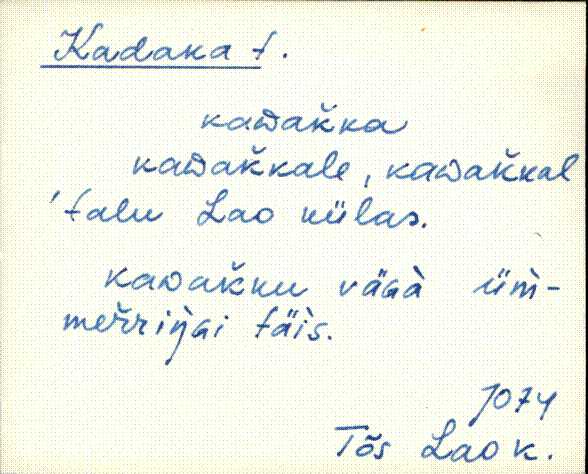 Kadaka t.
kaᴅak̆ka
kaᴅak̆kale, kaᴅak̆kal
'talu Lao külas.
kaᴅak̆ku väɢà üm̀-
mer̆riŋ̀ɢi täìs.
Tõs Lao k.